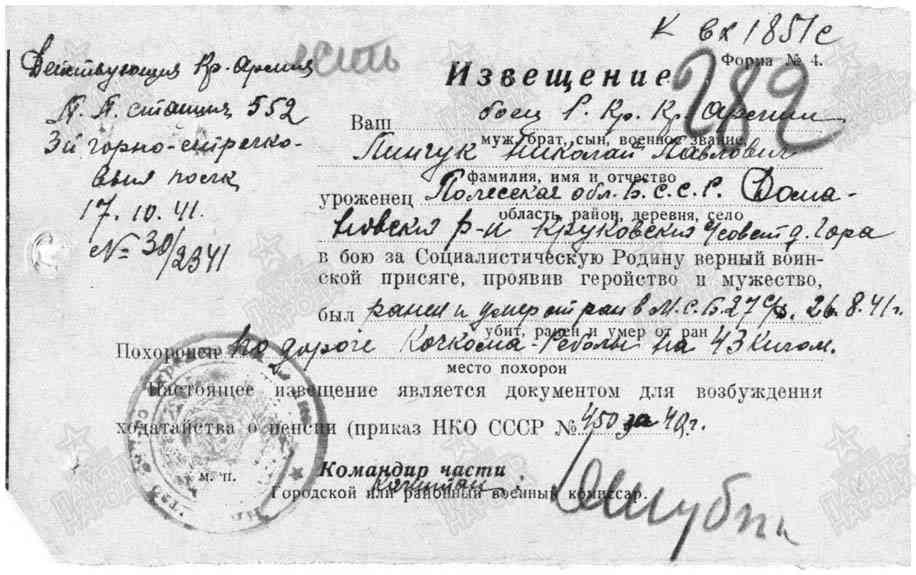 К вх 1851с
Форма № 4.
Действующая Кр. Армия
есть
П. П. станция 552
3й горно-стрелко-
вый полк
17. 10. 41.
№ 30/2341
Извещение
282
Ваш боец Р. Кр. Кр. Армии
муж, брат, сын, военное звание
Пинчук Николай Павлович
фамилия, имя и отчество
уроженец Полесская обл. Б. С. С. Р. Дома-
область, район, деревня, село
новский р-н Круковский с/совет д. Гора
в бою за Социалистическую Родину верный воин-
ской присяге, проявив геройство и мужество,
был ранен и умер от ран в М. С. Б. 27 сд. 26. 8. 41 г.
убит, ранен и умер от ран
Похоронен по дороге Кочкома-Реболы на 43 килом.
место похорон
Настоящее извещение является документом для возбуждения
ходатайства о пенсии (приказ НКО СССР № 450 за 41 г.
м. п.
Командир части
капитан
Городской или районный военный комиссар.